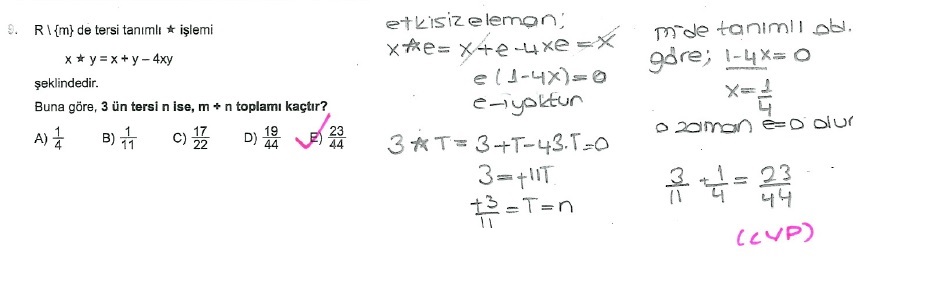 9. R \ {m} de tersi tanımlı ★ işlemi
x ★ y = x + y – 4xy
şeklindedir.
Buna göre, 3 ün tersi n ise, m + n toplamı kaçtır?
A) 1/4 B) 1/11 C) 17/22 D) 19/44 E) 23/44
etkisiz eleman;
x★e = x+e-4xe = x
e(1-4x)=0
e→yoktur
3★T = 3+T-43.T=0
3=+11T
+3/11 = T = n
m'de tanımlı old.
göre; 1-4x=0
x=1/4
o zaman e=0 olur
3/11 + 1/4 = 23/44
(CVP)